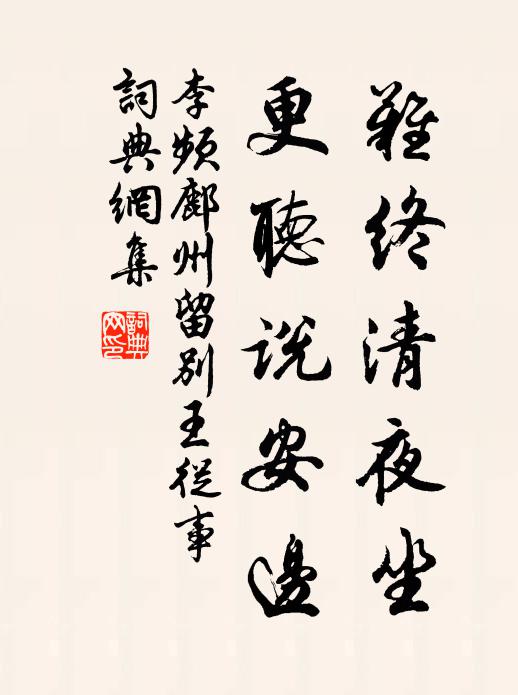 難終清夜坐
更聽說安邊
李頻鄜州留別王從事
詞典網集
詞典
網印